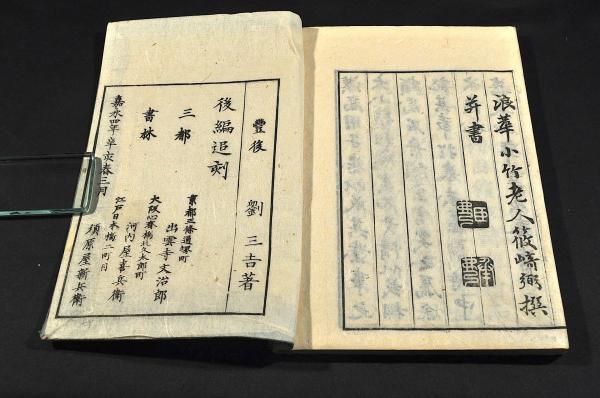 浪華小竹老人筱﨑弼撰
并書
豐後 劉三吉著
後編追刻
三都
書林
京都三條通堺町
出雲寺文治郎
大阪心斎橋北久太郎町
河内屋喜兵衛
江戸日本橋二町目
須原屋新兵衛
嘉永四年辛亥春三月